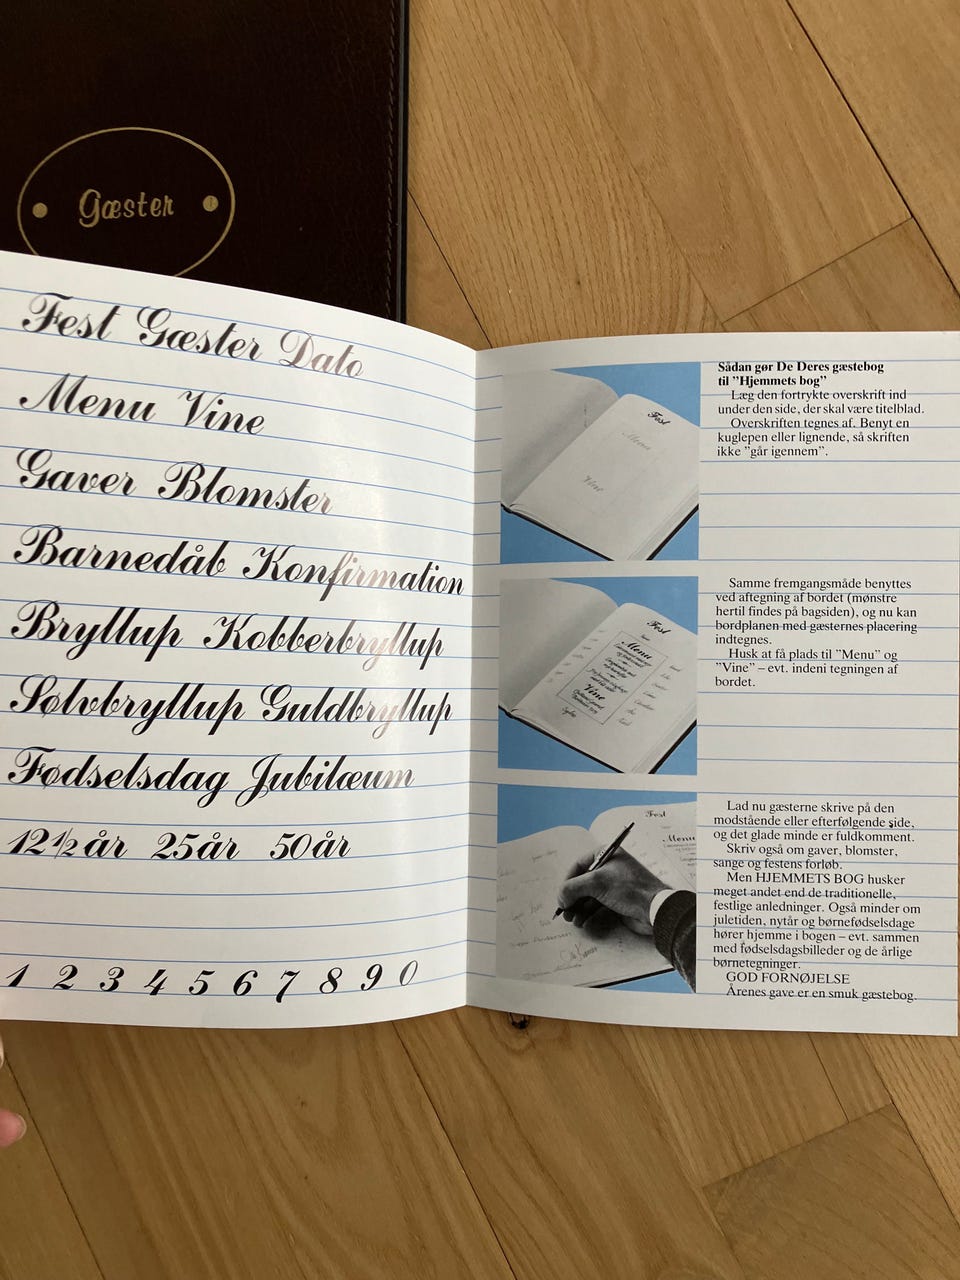 Gæster
Fest Gæster Dato
Menu Vine
Gaver Blomster
Barnedåb Konfirmation
Bryllup Kobberbryllup
Sølvbryllup Guldbryllup
Fødselsdag Jubilæum
12½ år 25 år 50 år
1 2 3 4 5 6 7 8 9 0
Sådan gør De Deres gæstebog
til ”Hjemmets bog”
Læg den fortrykte overskrift ind
under den side, der skal være titelblad.
Overskriften tegnes af. Benyt en
kuglepen eller lignende, så skriften
ikke ”går igennem”.
Fest
Menu
Vine
Samme fremgangsmåde benyttes
ved aftegning af bordet (mønstre
hertil findes på bagsiden), og nu kan
bordplanen med gæsternes placering
indtegnes.
Husk at få plads til ”Menu” og
”Vine” – evt. indeni tegningen af
bordet.
Fest
Menu
Vine
Lad nu gæsterne skrive på den
modstående eller efterfølgende side,
og det glade minde er fuldkomment.
Skriv også om gaver, blomster,
sange og festens forløb.
Men HJEMMETS BOG husker
meget andet end de traditionelle,
festlige anledninger. Også minder om
juletiden, nytår og børnefødselsdage
hører hjemme i bogen – evt. sammen
med fødselsdagsbilleder og de årlige
børnetegninger.
GOD FORNØJELSE
Årenes gave er en smuk gæstebog.
Fest
Menu